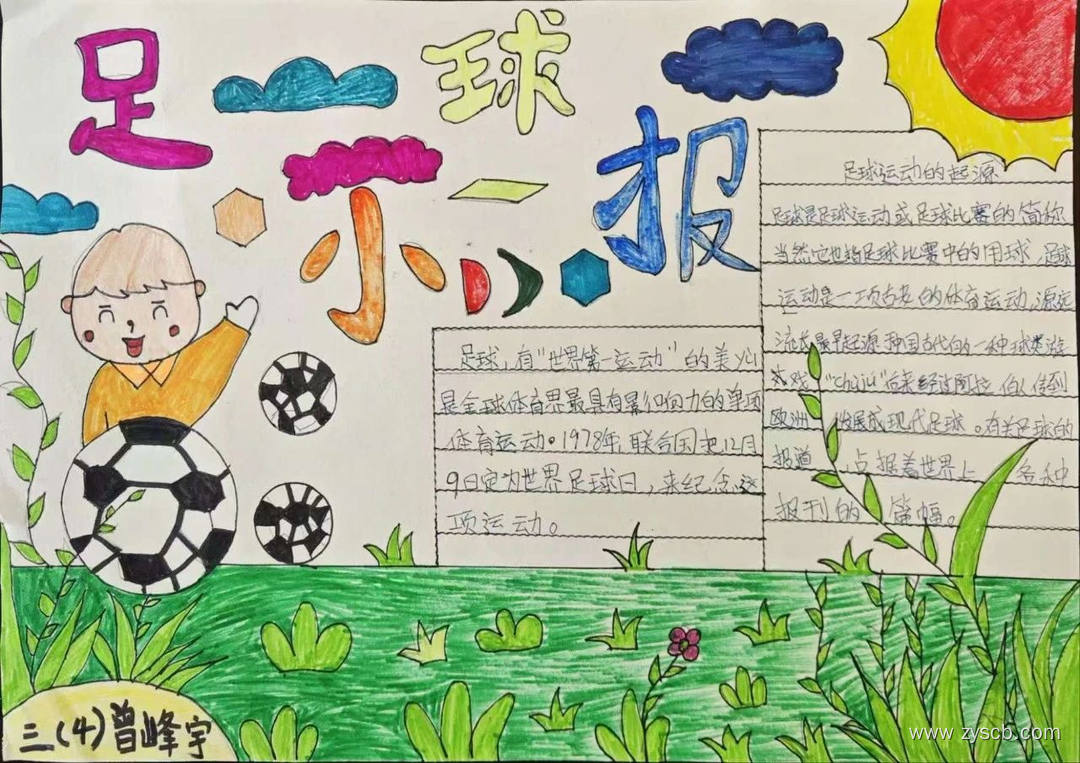 足球
小报
足球，有“世界第一运动”的美
是全球体育界最具有影响力的单项
体育运动。1978年，联合国把12月
9日定为世界足球日，来纪念这
项运动。
足球运动的起源
足球是足球运动或足球比赛的简称
当然它也指足球比赛中的用球 足球
运动是一项古老的体育运动，源远
流长最早起源 中国古代的一种球类游
戏 “chuju” 后来经过阿拉 伯人传到
欧洲 发展成现代足球。有关足球的
报道 占据着世界上 各种
报刊的 篇幅。
三(4)曾峰宇
www.zyscb.com